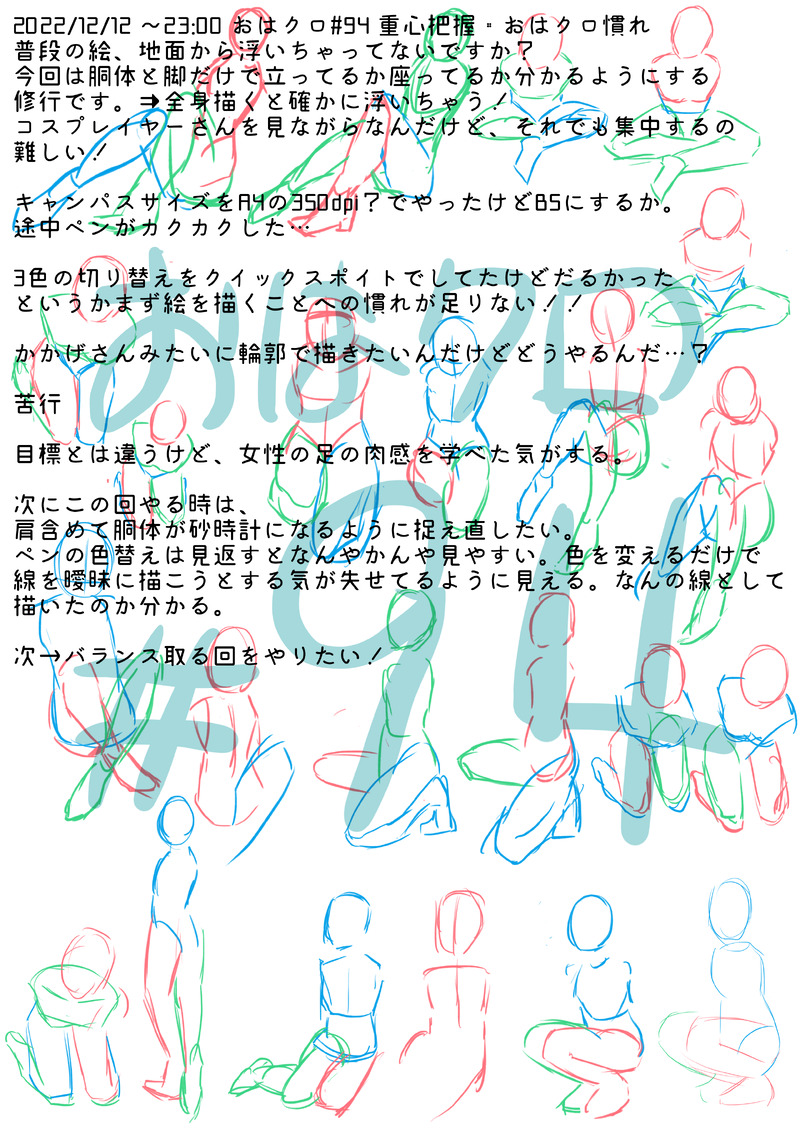 2022/12/12 ～23:00 おはクロ#94 重心把握・おはクロ慣れ
普段の絵、地面から浮いちゃってないですか？
今回は胴体と脚だけで立ってるか座ってるか分かるようにする
修行です。⇒全身描くと確かに浮いちゃう！
コスプレイヤーさんを見ながらなんだけど、それでも集中するの
難しい！
キャンパスサイズをA4の350dpi？でやったけどB5にするか。
途中ペンがカクカクした…
3色の切り替えをクイックスポイトでしてたけどだるかった
というかまず絵を描くことへの慣れが足りない！！
かかげさんみたいに輪郭で描きたいんだけどどうやるんだ…？
苦行
目標とは違うけど、女性の足の肉感を学べた気がする。
次にこの回やる時は、
肩含めて胴体が砂時計になるように捉え直したい。
ペンの色替えは見返すとなんやかんや見やすい。色を変えるだけで
線を曖昧に描こうとする気が失せてるように見える。なんの線として
描いたのか分かる。
次→バランス取る回をやりたい！
おはクロ
#94